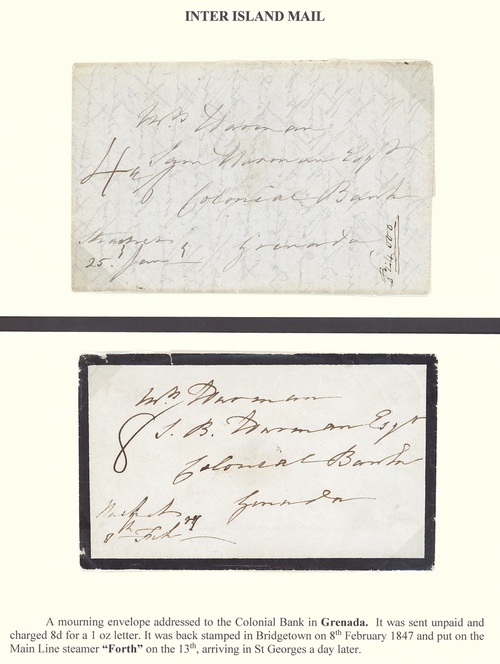 INTER ISLAND MAIL
Mrs Harman
4
Esqre
Colonial Bank
Grenada
25
Mrs Harman
8 S. B. Harman Esqre
Colonial Bank
Grenada
8th Feb
A mourning envelope addressed to the Colonial Bank in Grenada. It was sent unpaid and
charged 8d for a 1 oz letter. It was back stamped in Bridgetown on 8th February 1847 and put on the
Main Line steamer “Forth” on the 13th, arriving in St Georges a day later.